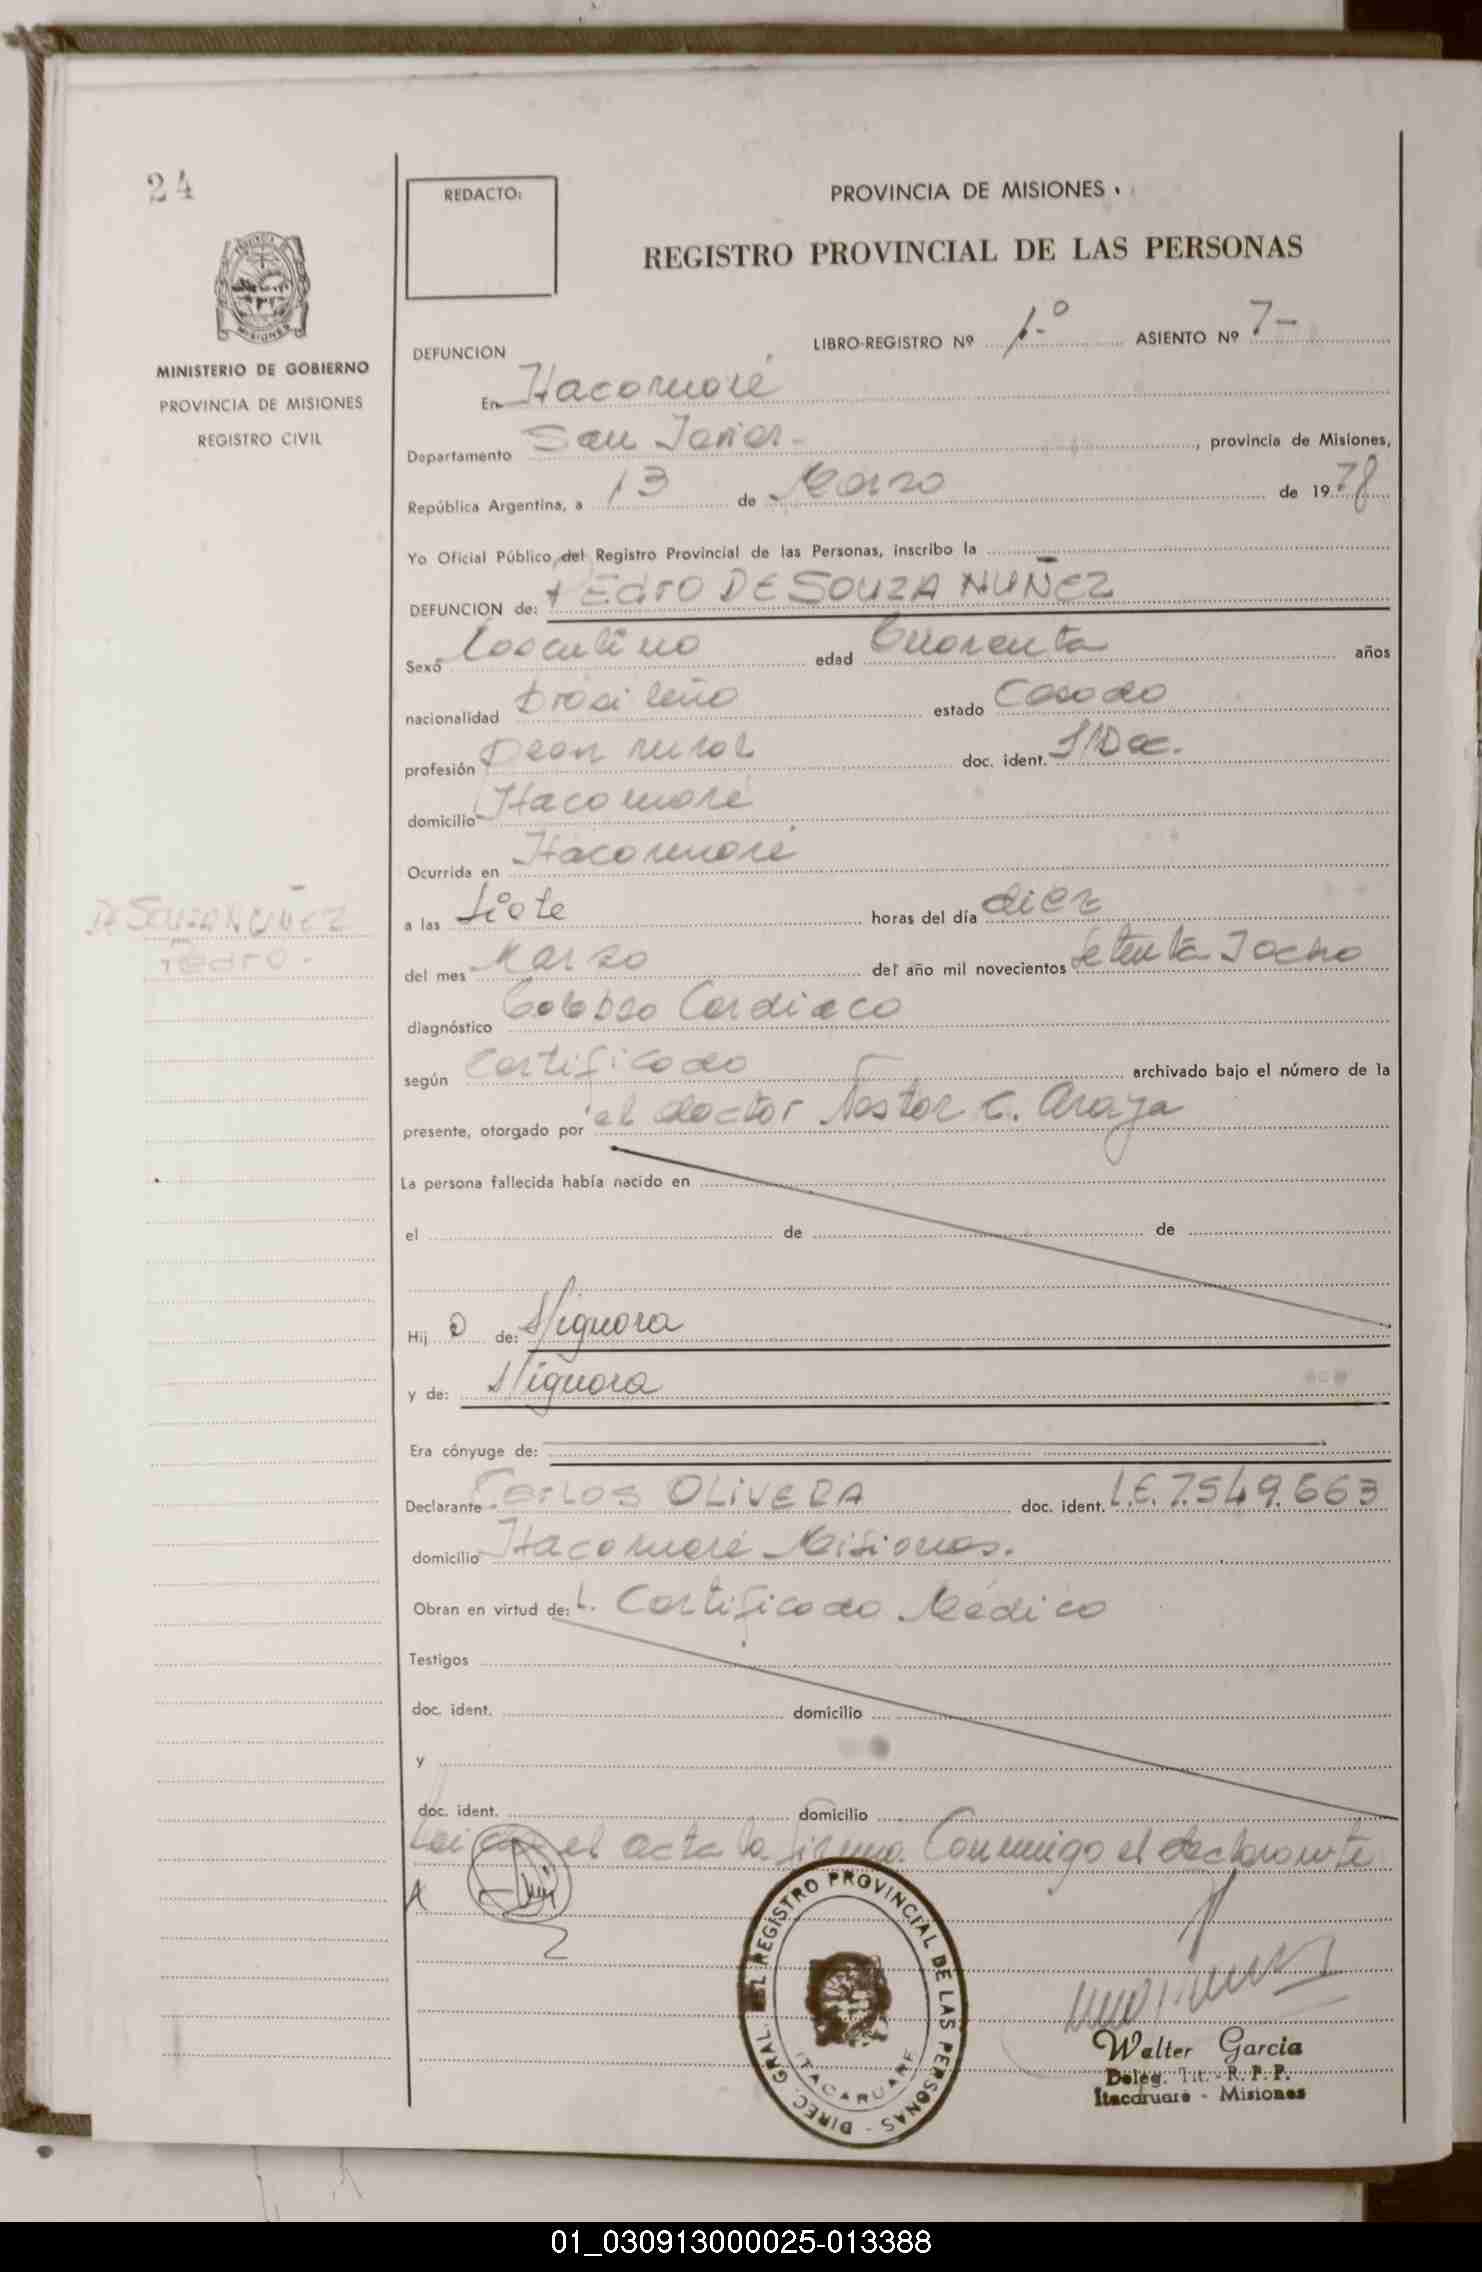 24
REDACTO:
PROVINCIA DE MISIONES
REGISTRO PROVINCIAL DE LAS PERSONAS
PROVINCIA DE MISIONES
MINISTERIO DE GOBIERNO
PROVINCIA DE MISIONES
REGISTRO CIVIL
LIBRO-REGISTRO Nº 1.º ASIENTO Nº 7-
DEFUNCION
En Itacaruaré
Departamento San Javier - , provincia de Misiones,
República Argentina, a 13 de Marzo de 1978
Yo Oficial Público del Registro Provincial de las Personas, inscribo la
DEFUNCION de: PEdro DE SOUZA NUÑEZ
Sexo Masculino edad Cuarenta años
nacionalidad Brasileño estado Casado
profesión Peon rural doc. ident. S/Doc.
domicilio Itacaruaré
Ocurrida en Itacaruaré
a las Siete horas del día diez
DE SOUZA NUÑEZ
PEdro.
del mes Marzo del año mil novecientos setenta y ocho
diagnóstico Colapso Cardiaco
según Certificado archivado bajo el número de la
presente, otorgado por el doctor Nestor C. Araya
La persona fallecida había nacido en
el de de
Hij o de: S/ignora
y de: S/ignora
Era cónyuge de:
Declarante Carlos OLIVERA doc. ident. L.E. 7.549.663
domicilio Itacaruaré Misiones.
Obran en virtud de: Certificado Médico
Testigos
doc. ident. domicilio
y
doc. ident. domicilio
Leida el acta la firma Conmigo el declarante
DIREC. GRAL. DEL REGISTRO PROVINCIAL DE LAS PERSONAS -
ITACARUARE
Walter Garcia
Deleg. Tit. - R. P. P.
Itacaruaré - Misiones
01_030913000025-013388